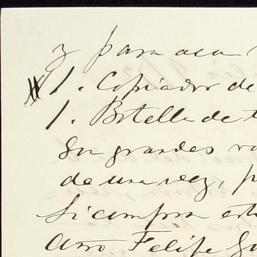 y para aca
# 1. Copiador de
1. Botella de t
En grandes
de una vez, p
Si compra est
amo Felipe Gu